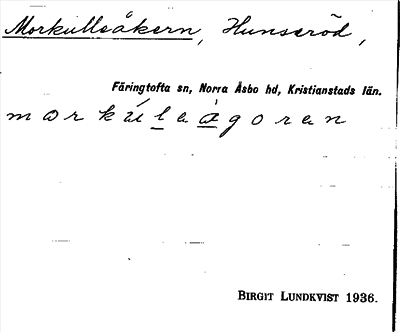 Morkulleåkern, Hunseröd,
Färingtofta sn, Norra Åsbo hd, Kristianstads län.
morkúleàgoren
BIRGIT LUNDKVIST 1936.